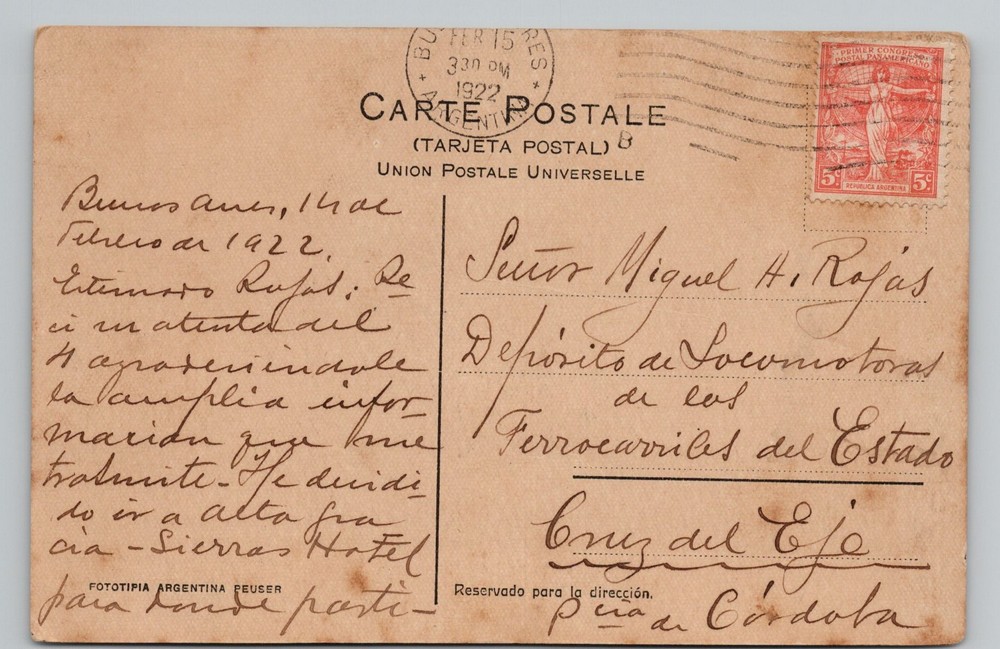 BUENOS AIRES
FEB 15
330 PM
1922
ARGENTINA
PRIMER CONGRESO
POSTAL PANAMERICANO
5c 5c
REPUBLICA ARGENTINA
CARTE POSTALE
(TARJETA POSTAL)
B
UNION POSTALE UNIVERSELLE
Buenos Aires, 14 de
Febrero de 1922.
Estimado Rojas: Re-
ci su atenta del
4 agradeciéndole
la amplia infor-
macion que me
trasmite - He decidi-
do ir a Alta Gra
cia - Sierras Hotel
para donde parti-
FOTOTIPIA ARGENTINA PEUSER
Señor Miguel A. Rojas
Depósito de Locomotoras
de los
Ferrocarriles del Estado
Cruz del Eje
Reservado para la dirección.
Pcia de Córdoba